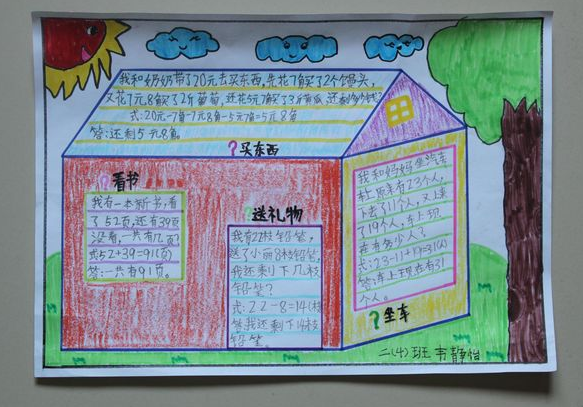 我和奶奶带了20元去买东西,先花7角买了2个馒头,
又花7元8角买了2斤葡萄,还花5元7角买了3斤黄瓜,还剩多少钱?
式:20元-7角-7元8角-5元7角=5元8角
答:还剩5元8角。
?买东西
?看书
我有一本新书,看
了52页,还有39页
没看,一共有几页?
式52+39=91(页)
答:一共有91页。
?送礼物
我有22枝铅笔,
送了小丽8枝铅笔,
我还剩下几枝
铅笔?
式:22-8=14(枝
答我还剩下14枝
铅笔。
我和妈妈坐汽车
车上原来有23个人,
下去了11个人,又上来
了19个人,车上现
在有多少人?
式:23-11+19=31(人)
答:车上现在有31
个人。
?坐车
二(4)班 韦静怡